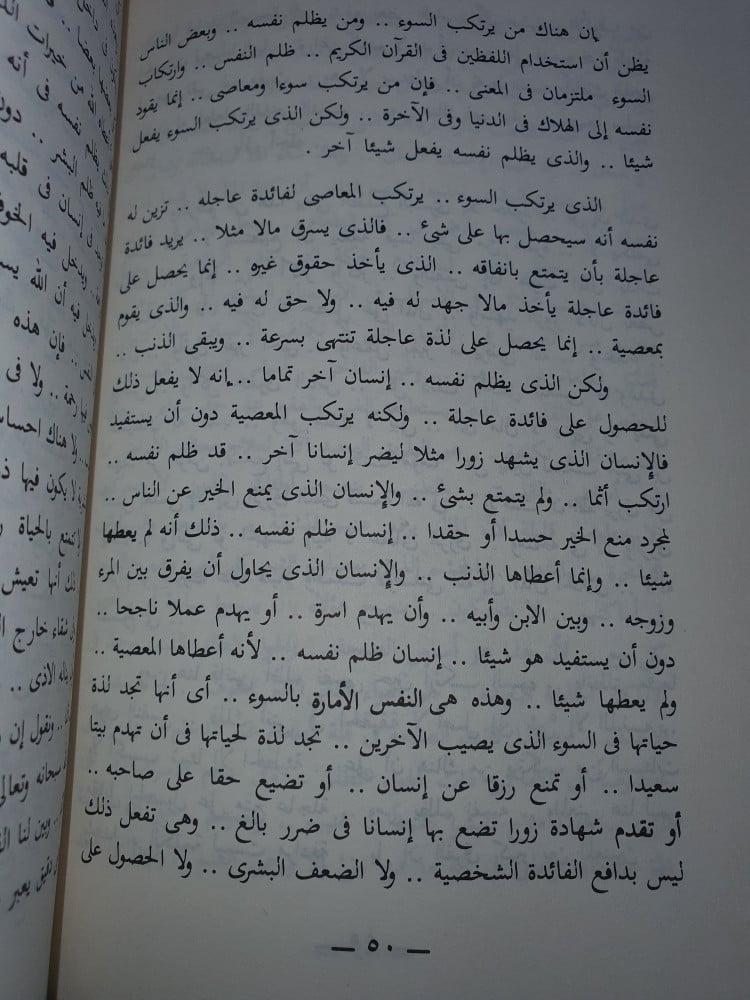 إن هناك من يرتكب السوء .. ومن يظلم نفسه .. وبعض الناس
يظن أن استخدام اللفظين فى القرآن الكريم .. ظلم النفس .. وارتكاب
السوء ملتزمان فى المعنى .. فإن من يرتكب سوءا ومعاصى .. إنما يقود
نفسه إلى الهلاك فى الدنيا وفى الآخرة .. ولكن الذى يرتكب السوء يفعل
شيئا .. والذى يظلم نفسه يفعل شيئا آخر .
الذى يرتكب السوء .. يرتكب المعاصى لفائدة عاجله .. تزين له
نفسه أنه سيحصل بها على شئ .. فالذى يسرق مالا مثلا .. يريد فائدة
عاجلة بأن يتمتع بانفاقه .. الذى يأخذ حقوق غيره .. إنما يحصل على
فائدة عاجلة يأخذ مالا جهد له فيه .. ولا حق له فيه .. والذى يقوم
بمعصية .. إنما يحصل على لذة عاجلة تنتهى بسرعة .. ويبقى الذنب ..
ولكن الذى يظلم نفسه .. إنسان آخر تماما .. إنه لا يفعل ذلك
للحصول على فائدة عاجلة .. ولكنه يرتكب المعصية دون أن يستفيد
فالإنسان الذى يشهد زورا مثلا ليضر إنسانا آخر .. قد ظلم نفسه ..
ارتكب أثما .. ولم يتمتع بشئ .. والإنسان الذى يمنع الخير عن الناس ..
لمجرد منع الخير حسدا أو حقدا .. إنسان ظلم نفسه .. ذلك أنه لم يعطها
شيئا .. وإنما أعطاها الذنب .. والإنسان الذى يحاول أن يفرق بين المرء
وزوجه .. وبين الابن وأبيه .. وأن يهدم اسرة .. أو يهدم عملا ناجحا ..
دون أن يستفيد هو شيئا .. إنسان ظلم نفسه .. لأنه أعطاها المعصية ..
ولم يعطها شيئا .. وهذه هى النفس الأمارة بالسوء .. أى أنها تجد لذة
حياتها فى السوء الذى يصيب الآخرين .. تجد لذة لحياتها فى أن تهدم بيتا
سعيدا .. أو تمنع رزقا عن إنسان .. أو تضيع حقا على صاحبه ..
أو تقدم شهادة زورا تضع بها إنسانا فى ضرر بالغ .. وهى تفعل ذلك
ليس بدافع الفائدة الشخصية .. ولا الضعف البشرى .. ولا الحصول على
— ٥٠ —